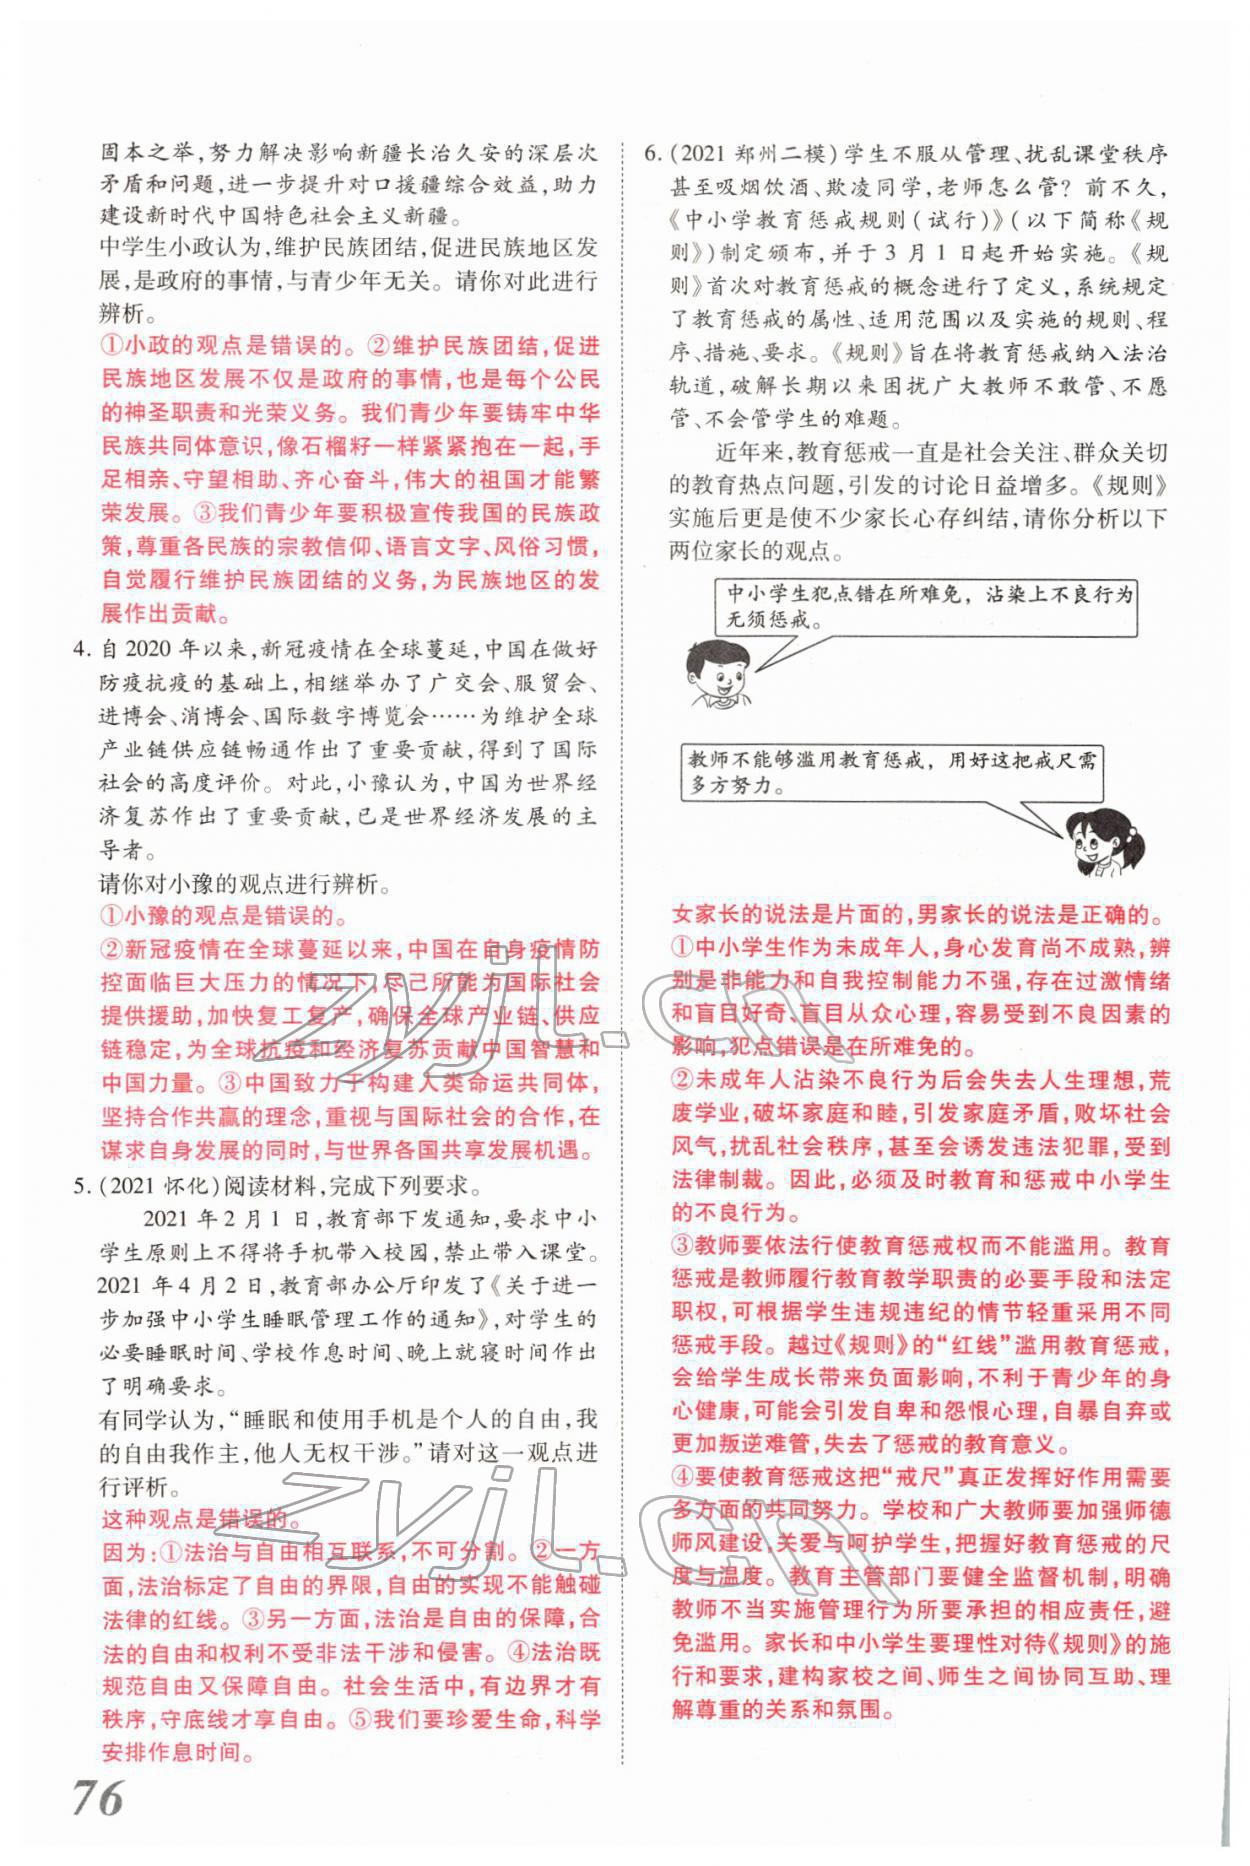 固本之举,努力解决影响新疆长治久安的深层次
矛盾和问题,进一步提升对口援疆综合效益,助力
建设新时代中国特色社会主义新疆。
中学生小政认为,维护民族团结,促进民族地区发
展,是政府的事情,与青少年无关。请你对此进行
辨析。
①小政的观点是错误的。②维护民族团结,促进
民族地区发展不仅是政府的事情,也是每个公民
的神圣职责和光荣义务。我们青少年要铸牢中华
民族共同体意识,像石榴籽一样紧紧抱在一起,手
足相亲、守望相助、齐心奋斗,伟大的祖国才能繁
荣发展。③我们青少年要积极宣传我国的民族政
策,尊重各民族的宗教信仰、语言文字、风俗习惯,
自觉履行维护民族团结的义务,为民族地区的发
展作出贡献。
4. 自2020年以来,新冠疫情在全球蔓延,中国在做好
防疫抗疫的基础上,相继举办了广交会、服贸会、
进博会、消博会、国际数字博览会……为维护全球
产业链供应链畅通作出了重要贡献,得到了国际
社会的高度评价。对此,小豫认为,中国为世界经
济复苏作出了重要贡献,已是世界经济发展的主
导者。
请你对小豫的观点进行辨析。
①小豫的观点是错误的。
②新冠疫情在全球蔓延以来,中国在自身疫情防
控面临巨大压力的情况下,尽己所能为国际社会
提供援助,加快复工复产,确保全球产业链、供应
链稳定,为全球抗疫和经济复苏贡献中国智慧和
中国力量。③中国致力于构建人类命运共同体,
坚持合作共赢的理念,重视与国际社会的合作,在
谋求自身发展的同时,与世界各国共享发展机遇。
5. (2021怀化)阅读材料,完成下列要求。
2021年2月1日,教育部下发通知,要求中小
学生原则上不得将手机带入校园,禁止带入课堂。
2021年4月2日,教育部办公厅印发了《关于进一
步加强中小学生睡眠管理工作的通知》,对学生的
必要睡眠时间、学校作息时间、晚上就寝时间作出
了明确要求。
有同学认为,“睡眠和使用手机是个人的自由,我
的自由我作主,他人无权干涉。”请对这一观点进
行评析。
这种观点是错误的。
因为:①法治与自由相互联系,不可分割。②一方
面,法治标定了自由的界限,自由的实现不能触碰
法律的红线。③另一方面,法治是自由的保障,合
法的自由和权利不受非法干涉和侵害。④法治既
规范自由又保障自由。社会生活中,有边界才有
秩序,守底线才享自由。⑤我们要珍爱生命,科学
安排作息时间。
76
6. (2021郑州二模)学生不服从管理、扰乱课堂秩序
甚至吸烟饮酒、欺凌同学,老师怎么管?前不久,
《中小学教育惩戒规则(试行)》(以下简称《规
则》)制定颁布,并于3月1日起开始实施。《规
则》首次对教育惩戒的概念进行了定义,系统规定
了教育惩戒的属性、适用范围以及实施的规则、程
序、措施、要求。《规则》旨在将教育惩戒纳入法治
轨道,破解长期以来困扰广大教师不敢管、不愿
管、不会管学生的难题。
近年来,教育惩戒一直是社会关注、群众关切
的教育热点问题,引发的讨论日益增多。《规则》
实施后更是使不少家长心存纠结,请你分析以下
两位家长的观点。
中小学生犯点错在所难免，沾染上不良行为
无须惩戒。
教师不能够滥用教育惩戒，用好这把戒尺需
多方努力。
女家长的说法是片面的,男家长的说法是正确的。
①中小学生作为未成年人,身心发育尚不成熟,辨
别是非能力和自我控制能力不强,存在过激情绪
和盲目好奇、盲目从众心理,容易受到不良因素的
影响,犯点错误是在所难免的。
②未成年人沾染不良行为后会失去人生理想,荒
废学业,破坏家庭和睦,引发家庭矛盾,败坏社会
风气,扰乱社会秩序,甚至会诱发违法犯罪,受到
法律制裁。因此,必须及时教育和惩戒中小学生
的不良行为。
③教师要依法行使教育惩戒权而不能滥用。教育
惩戒是教师履行教育教学职责的必要手段和法定
职权,可根据学生违规违纪的情节轻重采用不同
惩戒手段。越过《规则》的“红线”滥用教育惩戒,
会给学生成长带来负面影响,不利于青少年的身
心健康,可能会引发自卑和怨恨心理,自暴自弃或
更加叛逆难管,失去了惩戒的教育意义。
④要使教育惩戒这把“戒尺”真正发挥好作用需要
多方面的共同努力。学校和广大教师要加强师德
师风建设,关爱与呵护学生,把握好教育惩戒的尺
度与温度。教育主管部门要健全监督机制,明确
教师不当实施管理行为所要承担的相应责任,避
免滥用。家长和中小学生要理性对待《规则》的施
行和要求,建构家校之间、师生之间协同互助、理
解尊重的关系和氛围。
zyjl.cn
zyjl.cn